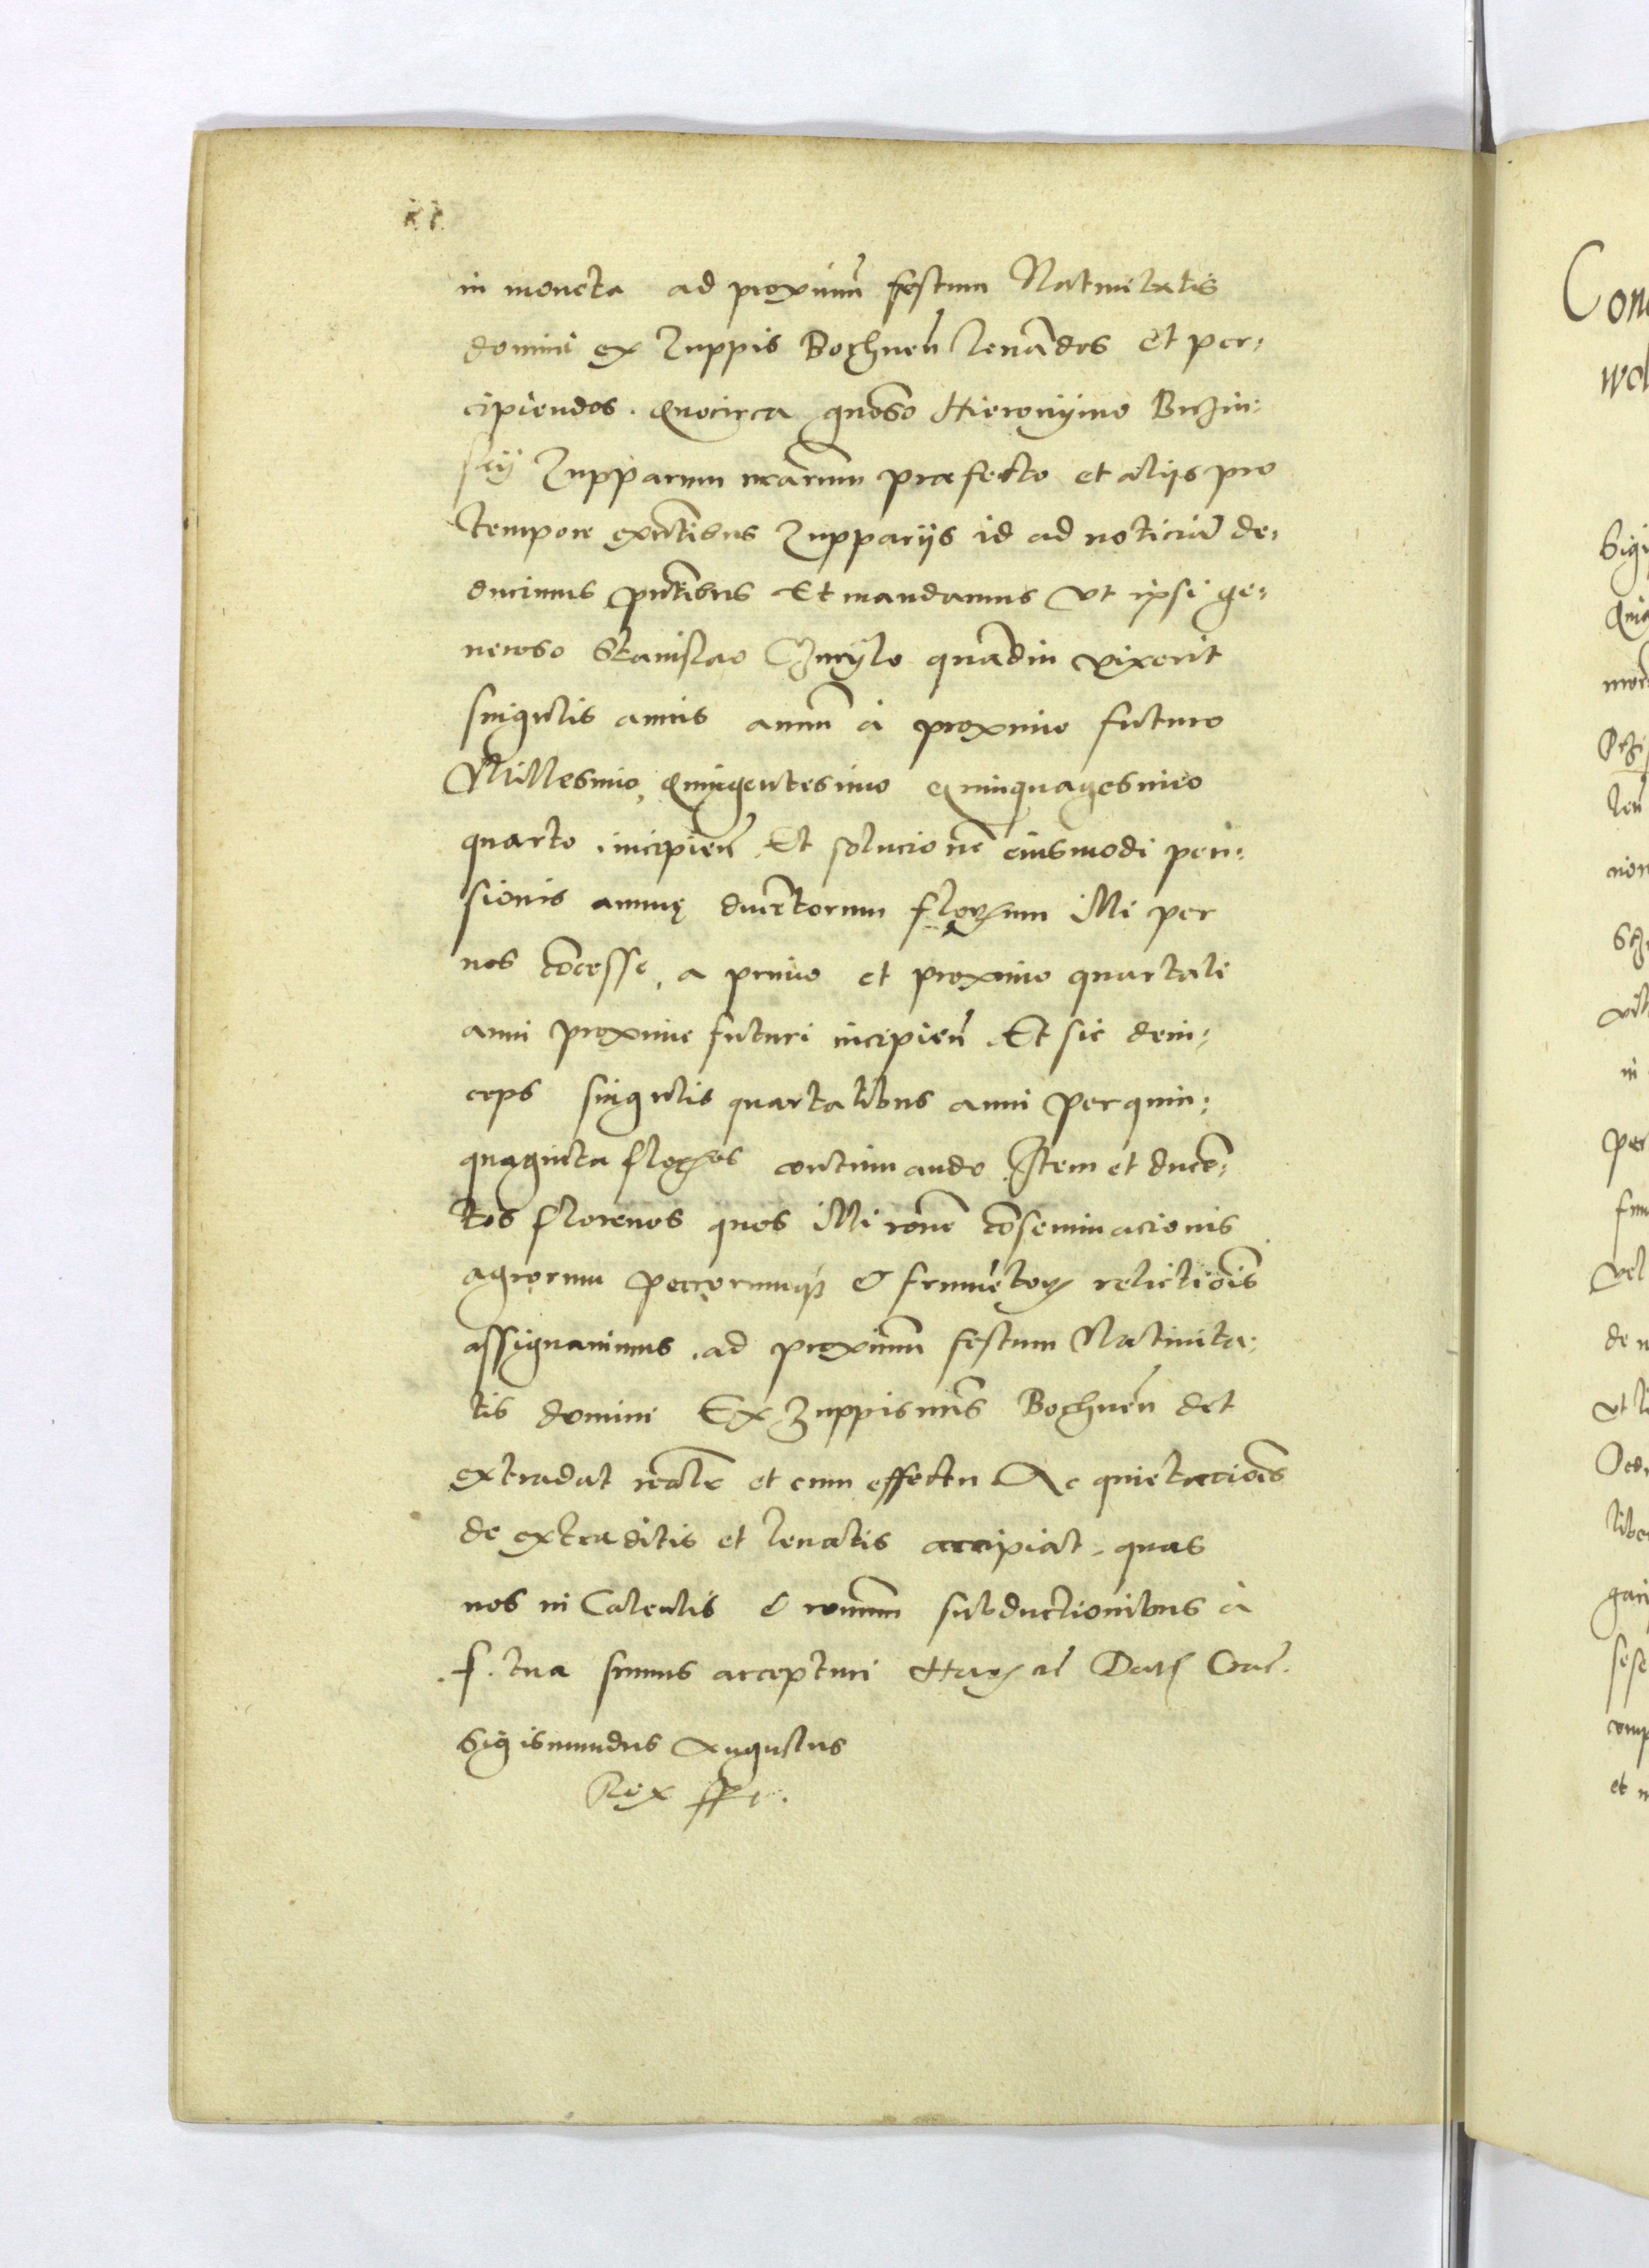 in moneta ad proximū festum Natiuitatis
domini ex Zuppis Bochnen̄ leuādos et per:
cipiendos. Quocirca gnōso Hieronÿmo Buzin:
skÿ Zupparum nrārum præfecto et alijs pro
tempore existentibus Zupparijs id ad noticiā de:
ducimus pntībus Et mandamus vt ipsi ge:
neroso Stanislao Czuryło quādiu vixerit
singulis annis annū à proximo futuro
Millesimo, quingentesimo quinquagesimo
quarto incipien̄ Et solucionē eiusmodi pen:
sionis annuę ducētorum florenum illi per
nos cōcesse, a primo et proximo quartali
anni proxime futuri incipien̄ Et sic dein:
ceps singulis quartalibus anni per quin:
quaginta flos continuando Item et ducē:
tos florenos quos illi rōne cōseminacionis
agrorum pecorumq3 & frumētoꝝ relictiōis
assignauimus, ad proximū festum Natiuita:
tis domini Ex Zuppis nrīs Bochnen̄ det
extradat reālr et cum effectu Ac quietaciōes
de extraditis et leuatis accipiat, quas
nos in Calculis & rōnum subductionibus à
f. tua sumus accepturi Datꝭ Crac̄.
Sigismundus Augustus
Rex sst.
Con
wol
Sigi
in
per
vel
de n
vt li
libe
comp
et n